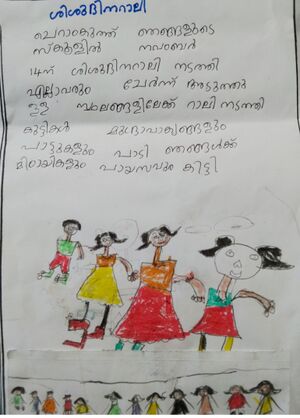 ശിശുദിനറാലി
ചെറാകുത്ത് ഞങ്ങളുടെ
സ്കൂളിൽ നവംബർ
14ന് ശിശുദിനറാലി നടത്തി
എല്ലാവരും ചേർന്ന് അടുത്തു
ള്ള സ്ഥലങ്ങളിലേക്ക് റാലി നടത്തി
കുട്ടികൾ മുദ്രാവാക്യങ്ങളും
പാട്ടുകളും പാടി ഞങ്ങൾക്ക്
മിഠായികളും പായസവും കിട്ടി